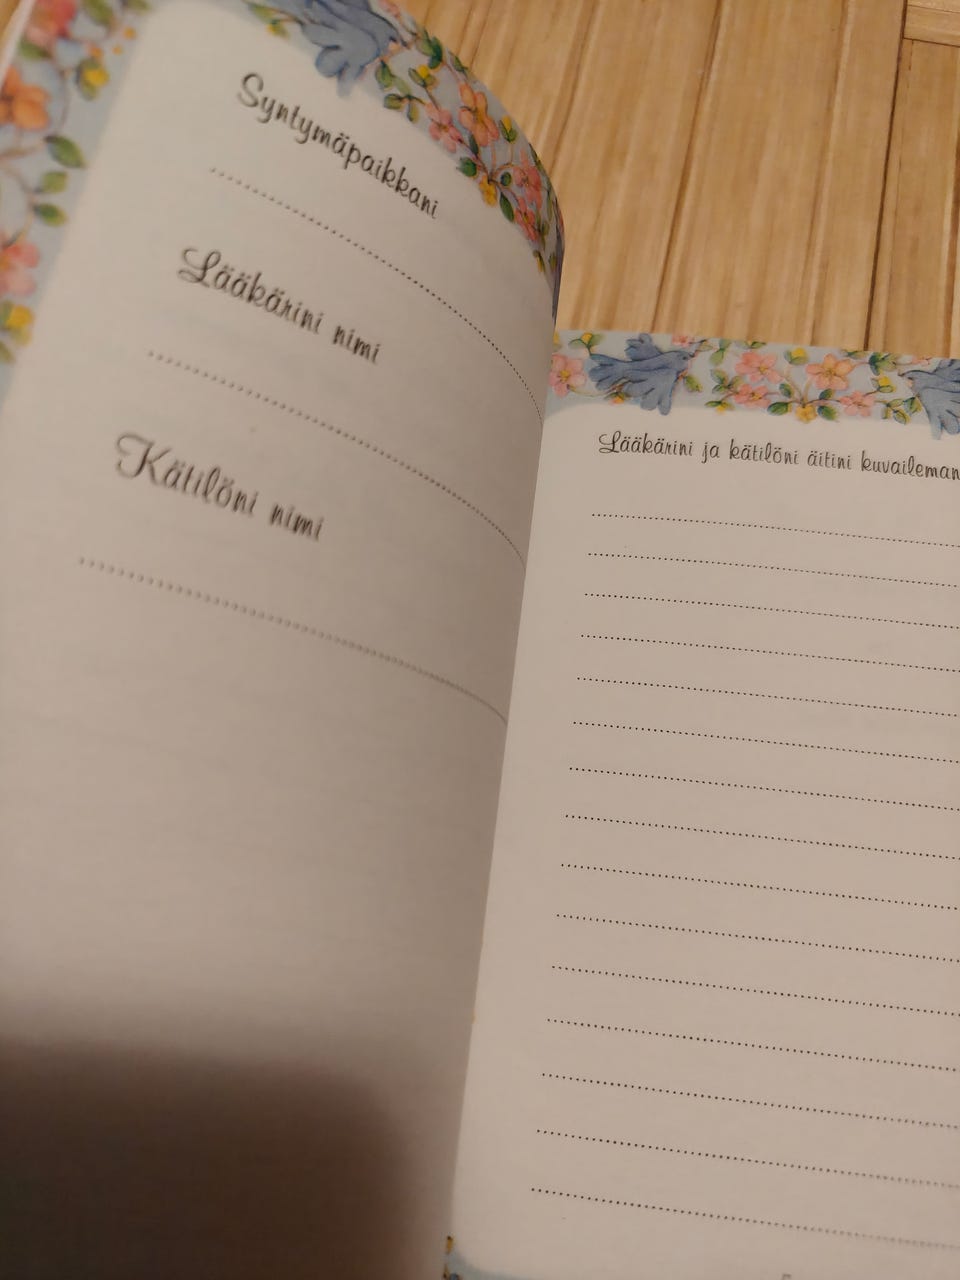 Syntymäpaikkani
Lääkärini nimi
Kätilöni nimi
Lääkärini ja kätilöni äitini kuvaileman